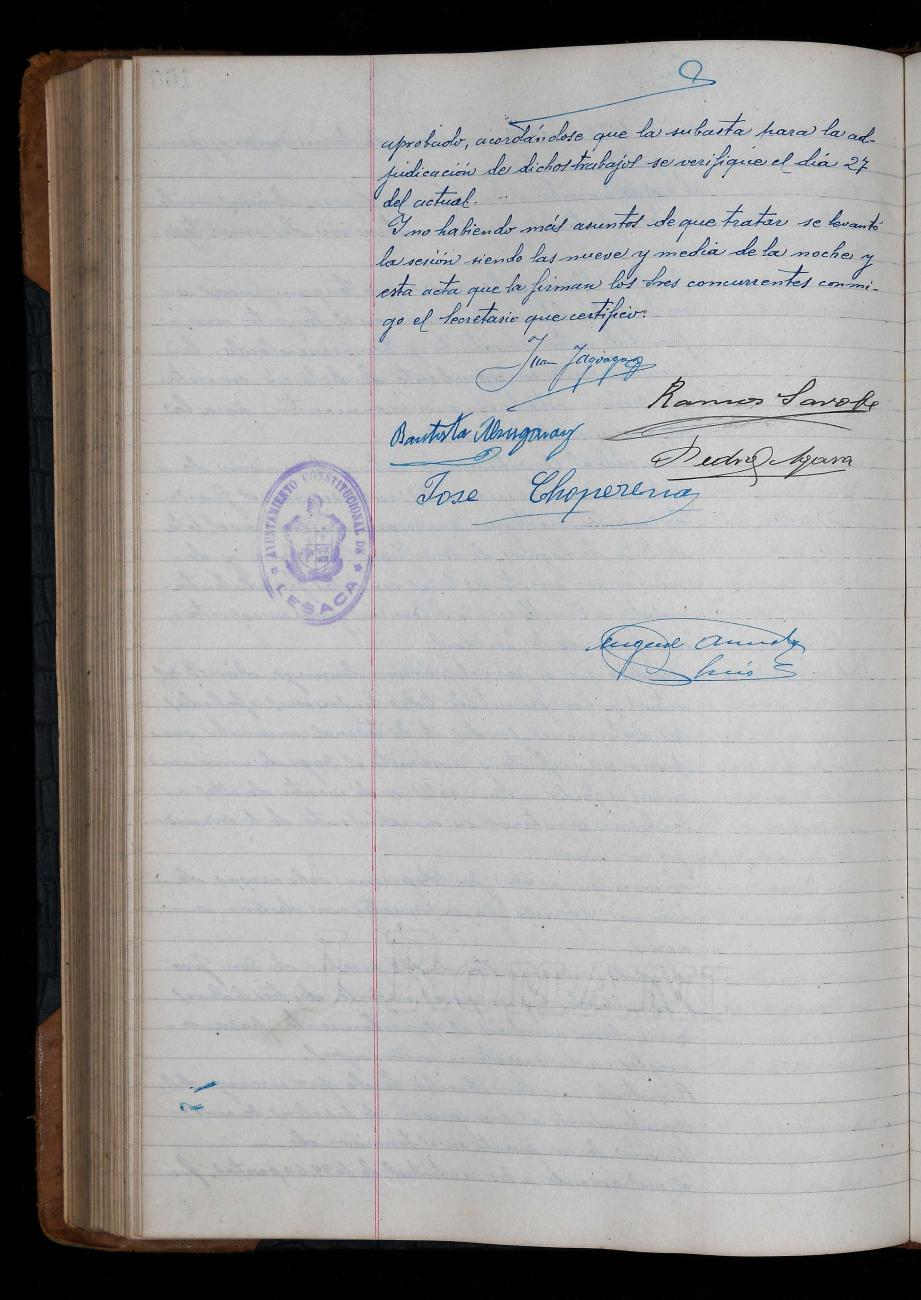 aprobado, acordándose que la subasta para la ad-
judicación de dichos trabajos se verifique el día 27
del actual.
Y no habiendo más asuntos de que tratar se levantó
la sesión siendo las nueve y media de la noche y
esta acta que la firman los Sres concurrentes conmi-
go el Secretario que certifico.
Juan
Ramos
Bautista
Pedro
Jose Choperena
AYUNTAMIENTO CONSTITUCIONAL DE
LESACA
Miguel